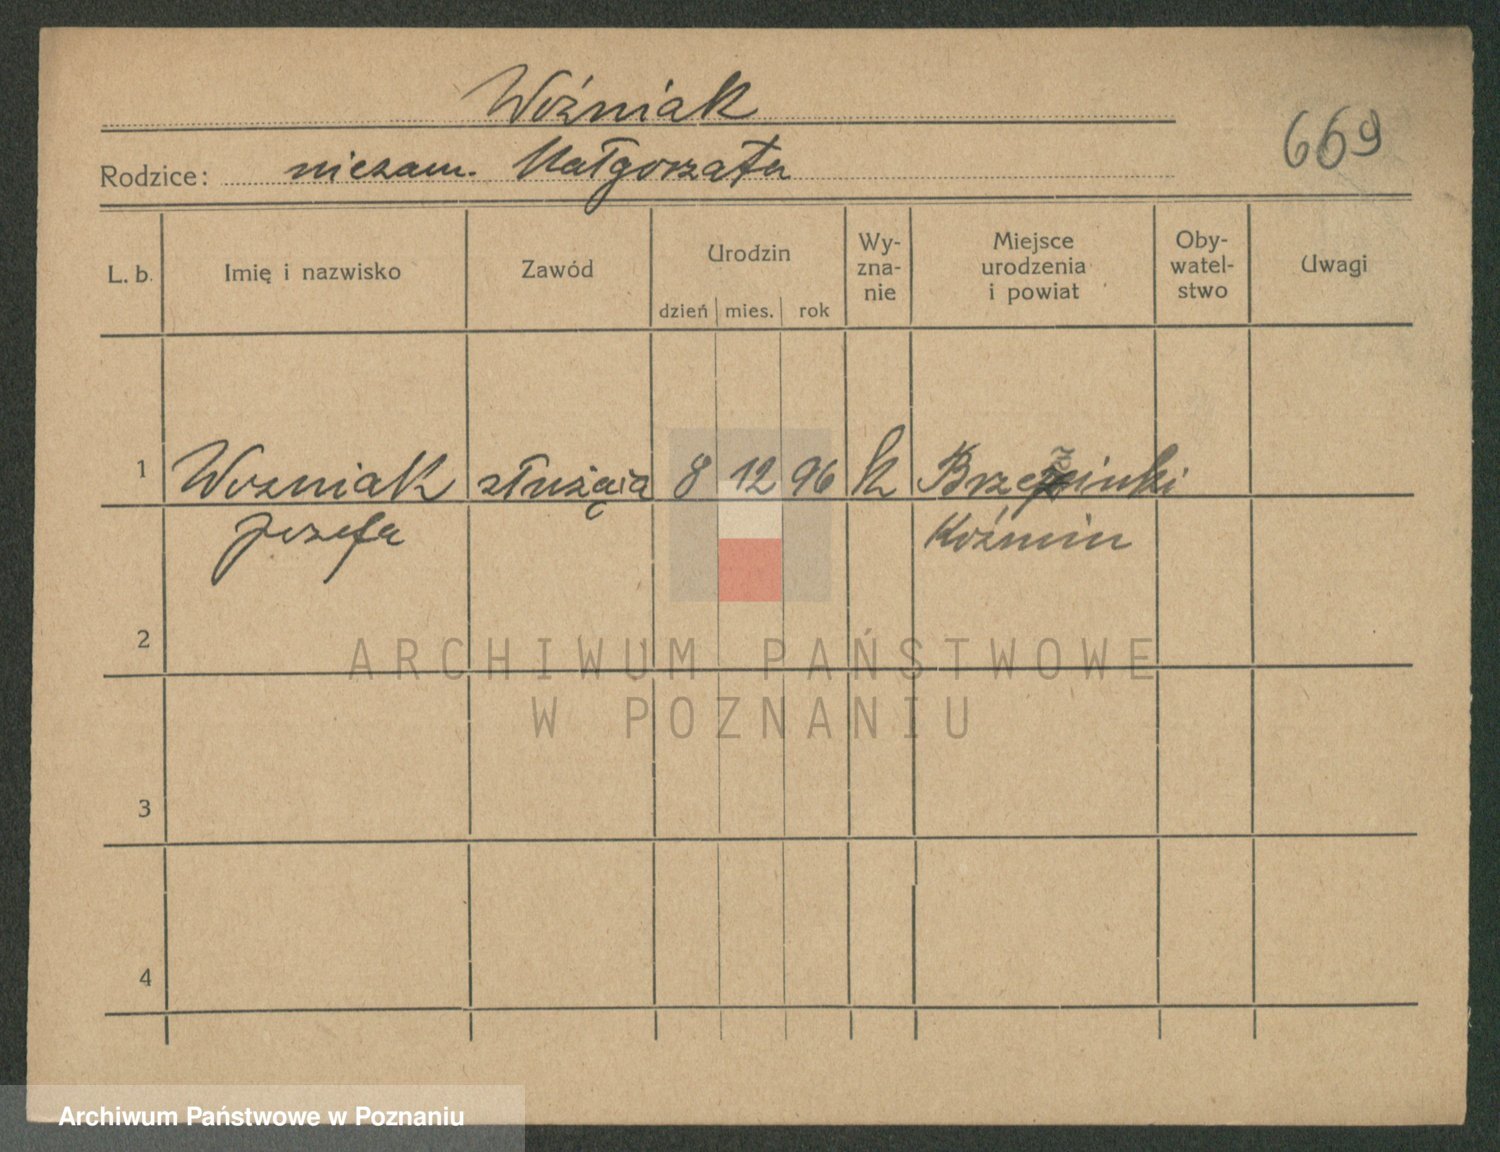 Woźniak
669
Rodzice: niezam. Małgorzata
L. b. Imię i nazwisko Zawód Urodzin dzień mies. rok Wy-zna-nie Miejsce urodzenia i powiat Oby-watel-stwo Uwagi
1 Wozniak służąca 8 12 96 k Brzezinki
Jozefa Koźmin
2
ARCHIWUM PAŃSTWOWE
W POZNANIU
3
4
Archiwum Państwowe w Poznaniu